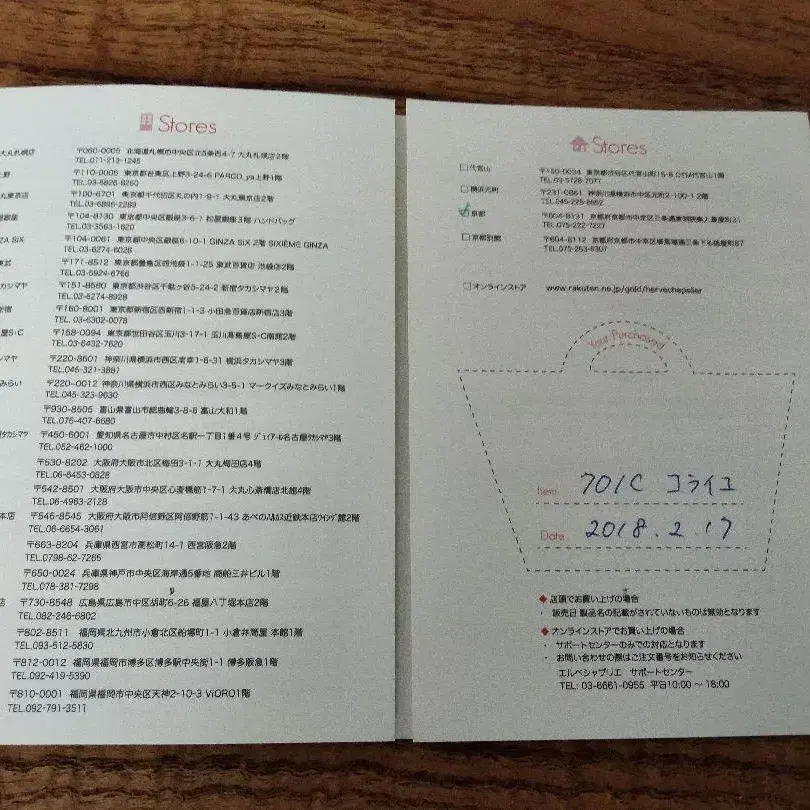 Stores
大丸札幌店 〒060-0005 北海道札幌市中央区北5条西4-7 大丸札幌店2階
TEL.011-213-1245
上野 〒110-0005 東京都台東区上野3-24-6 PARCO_ya上野1階
TEL.03-5826-8260
丸東京店 〒100-6701 東京都千代田区丸の内1-9-1 大丸東京店2階
TEL.03-6895-2289
屋銀座 〒104-8130 東京都中央区銀座3-6-1 松屋銀座3階 ハンドバッグ
TEL.03-3563-1620
ZA SIX 〒104-0061 東京都中央区銀座6-10-1 GINZA SIX 2階 SIXIÈME GINZA
TEL.03-6274-6026
東武 〒171-8512 東京都豊島区西池袋1-1-25 東武百貨店 池袋店2階
TEL.03-5924-6766
タカシマヤ 〒151-8580 東京都渋谷区千駄ヶ谷5-24-2 新宿タカシマヤ2階
TEL.03-6274-8928
新宿 〒160-8001 東京都新宿区西新宿1-1-3 小田急百貨店新宿店3階
TEL.03-6302-0078
屋S・C 〒158-0094 東京都世田谷区玉川3-17-1 玉川髙島屋S・C南館2階
TEL.03-6432-7620
シマヤ 〒220-8601 神奈川県横浜市西区南幸1-6-31 横浜タカシマヤ3階
TEL.045-321-3887
みらい 〒220-0012 神奈川県横浜市西区みなとみらい3-5-1 マークイズみなとみらい1階
TEL.045-323-9630
〒930-8505 富山県富山市総曲輪3-8-6 富山大和1階
TEL.076-407-6680
タカシマヤ 〒450-6001 愛知県名古屋市中村区名駅一丁目1番4号 ジェイアール名古屋タカシマヤ3階
TEL.052-462-1000
〒530-8202 大阪府大阪市北区梅田3-1-1 大丸梅田店4階
TEL.06-6453-0828
〒542-8501 大阪府大阪市中央区心斎橋筋1-7-1 大丸心斎橋店北館4階
TEL.06-4963-2128
本店 〒545-8545 大阪府大阪市阿倍野区阿倍野筋1-1-43 あべのハルカス近鉄本店ウイング館2階
TEL.06-6654-3061
〒663-8204 兵庫県西宮市高松町14-1 西宮阪急2階
TEL.0798-62-7265
〒650-0024 兵庫県神戸市中央区海岸通5番地 商船三井ビル1階
TEL.078-381-7298
店 〒730-8548 広島県広島市中区胡町6-26 福屋八丁堀本店2階
TEL.082-246-6802
〒802-8511 福岡県北九州市小倉北区船場町1-1 小倉井筒屋 本館1階
TEL.093-512-5830
〒812-0012 福岡県福岡市博多区博多駅中央街1-1 博多阪急1階
TEL.092-419-5390
〒810-0001 福岡県福岡市中央区天神2-10-3 VIORO1階
TEL.092-791-3511
Stores
代官山 〒150-0034 東京都渋谷区代官山町15-8 OTSA代官山1階
TEL.03-5728-7077
横浜元町 〒231-0861 神奈川県横浜市中区元町2-100-1 2階
TEL.045-225-8652
京都 〒604-8131 京都府京都市中京区三条通東洞院東入菱屋町31
TEL.075-222-7227
京都別館 〒604-8112 京都府京都市中京区堺町通三条下る道祐町87
TEL.075-253-6307
オンラインストア www.rakuten.ne.jp/gold/hervechapelier
Your Purchased
Item 701C コライユ
Date 2018.2.17
◆店頭でお買い上げの場合
・ 販売日 製品名の記載がされていないものは無効となります
◆オンラインストアでお買い上げの場合
・ サポートセンターのみでの対応となります
・ お問い合わせの際はご注文番号をお知らせください
エルベシャプリエ サポートセンター
TEL: 03-6661-0955 平日10:00 〜 18:00